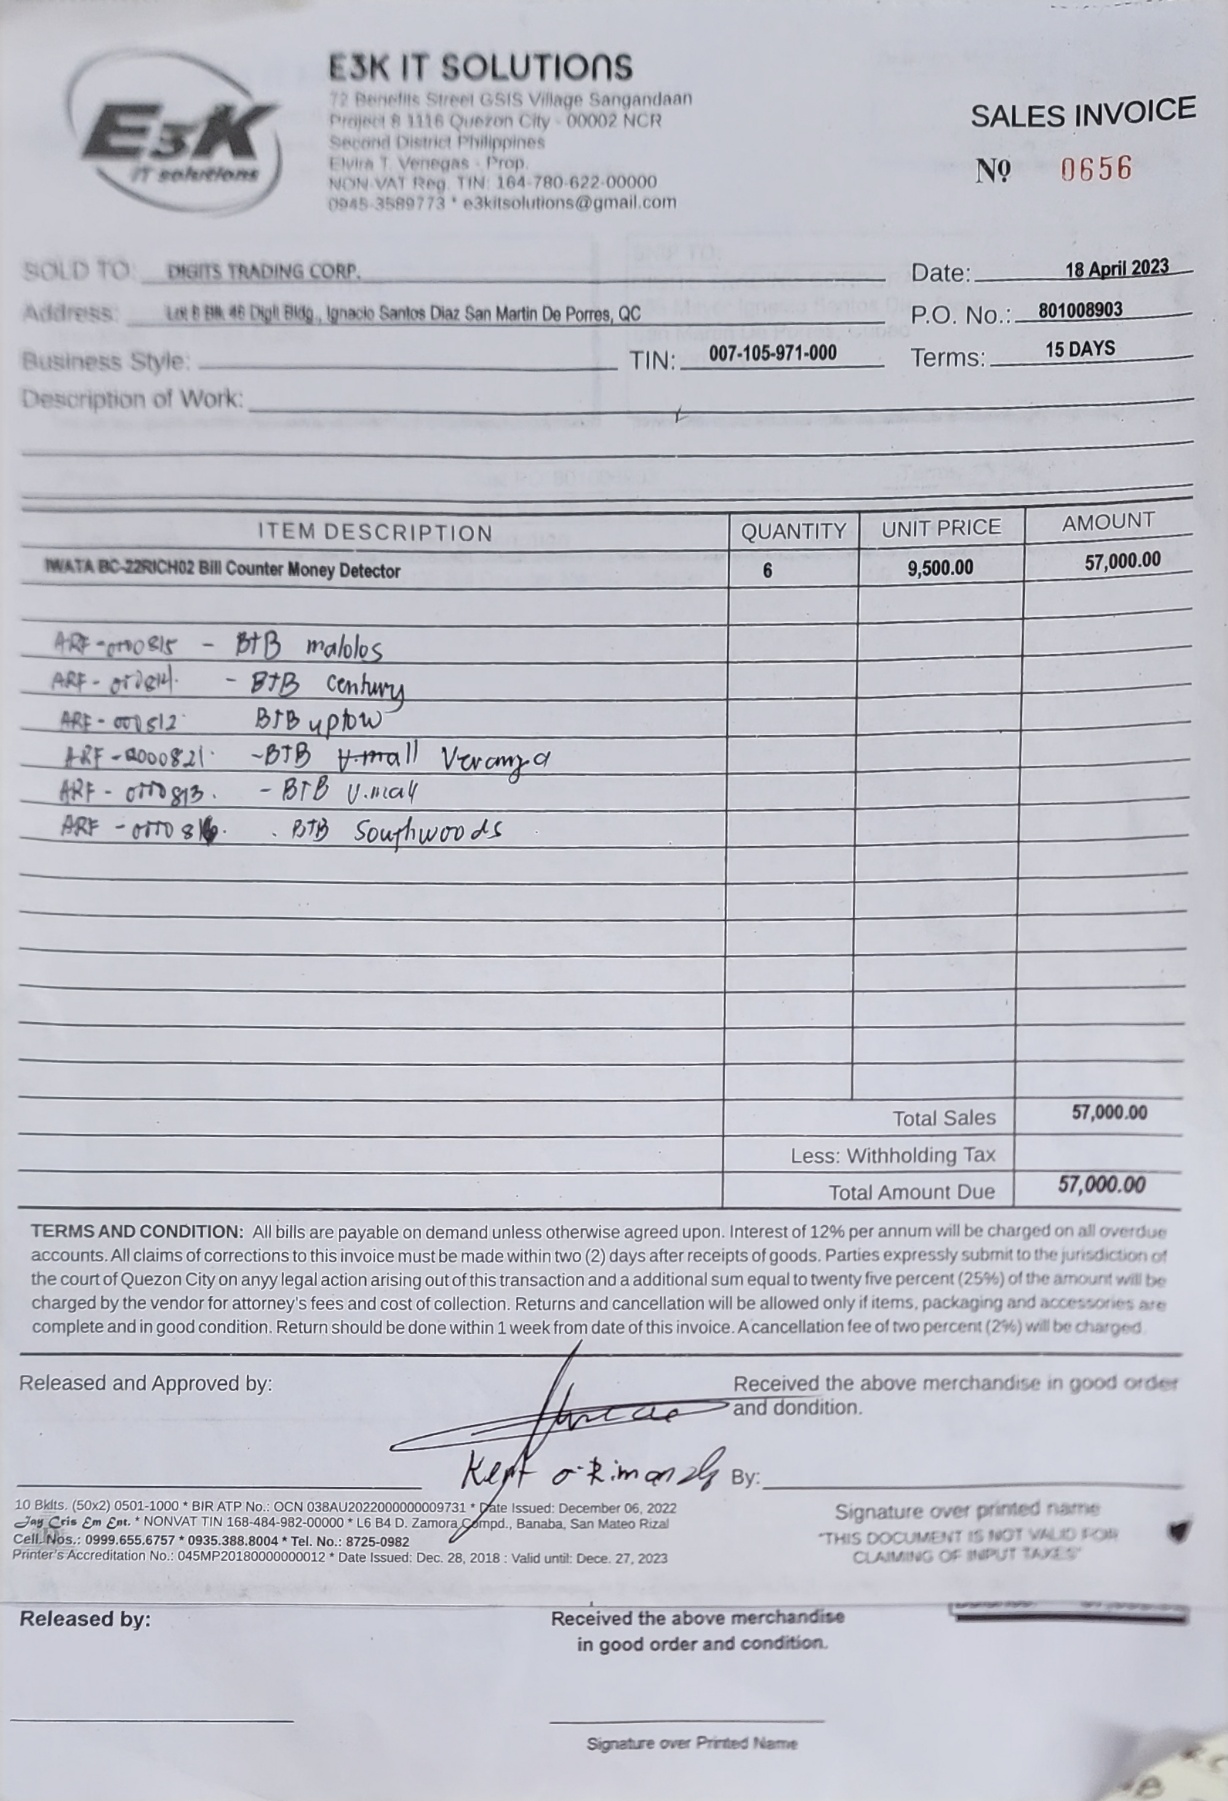 E3K IT SOLUTIONS
E3K
IT solutions
72 Benefits Street GSIS Village Sangandaan
Project 8 1116 Quezon City - 00002 NCR
Second District Philippines
Elvira T. Venegas - Prop.
NON-VAT Reg. TIN: 164-780-622-00000
0945-3589773 * e3kitsolutions@gmail.com
SALES INVOICE
Nº 0656
SOLD TO: DIGITS TRADING CORP.
Date: 18 April 2023
Address: Lot 8 Blk 46 Digit Bldg., Ignacio Santos Diaz San Martin De Porres, QC
P.O. No.: 801008903
Business Style: TIN: 007-105-971-000
Terms: 15 DAYS
Description of Work:
ITEM DESCRIPTION QUANTITY UNIT PRICE AMOUNT
IWATA BC-22RICH02 Bill Counter Money Detector 6 9,500.00 57,000.00
ARF-0000815 - BTB malolos
ARF- - BTB century
ARF-000812 BTB uptow
ARF-0000821 -BTB V.mall Veranza
ARF-0000813. - BTB V.mall
ARF - . BTB Southwoods
Total Sales 57,000.00
Less: Withholding Tax
Total Amount Due 57,000.00
TERMS AND CONDITION: All bills are payable on demand unless otherwise agreed upon. Interest of 12% per annum will be charged on all overdue
accounts. All claims of corrections to this invoice must be made within two (2) days after receipts of goods. Parties expressly submit to the jurisdiction of
the court of Quezon City on anyy legal action arising out of this transaction and a additional sum equal to twenty five percent (25%) of the amount will be
charged by the vendor for attorney's fees and cost of collection. Returns and cancellation will be allowed only if items, packaging and accessories are
complete and in good condition. Return should be done within 1 week from date of this invoice. A cancellation fee of two percent (2%) will be charged.
Released and Approved by:
Received the above merchandise in good order
and dondition.
By:
10 Bklts. (50x2) 0501-1000 * BIR ATP No.: OCN 038AU2022000000009731 * Date Issued: December 06, 2022
Jay Cris Em Ent. * NONVAT TIN 168-484-982-00000 * L6 B4 D. Zamora Compd., Banaba, San Mateo Rizal
Cell. Nos.: 0999.655.6757 * 0935.388.8004 * Tel. No.: 8725-0982
Printer's Accreditation No.: 045MP20180000000012 * Date Issued: Dec. 28, 2018 : Valid until: Dece. 27, 2023
Signature over printed name
"THIS DOCUMENT IS NOT VALID FOR
CLAIMING OF INPUT TAXES"
Released by:
Received the above merchandise
in good order and condition.
Signature over Printed Name